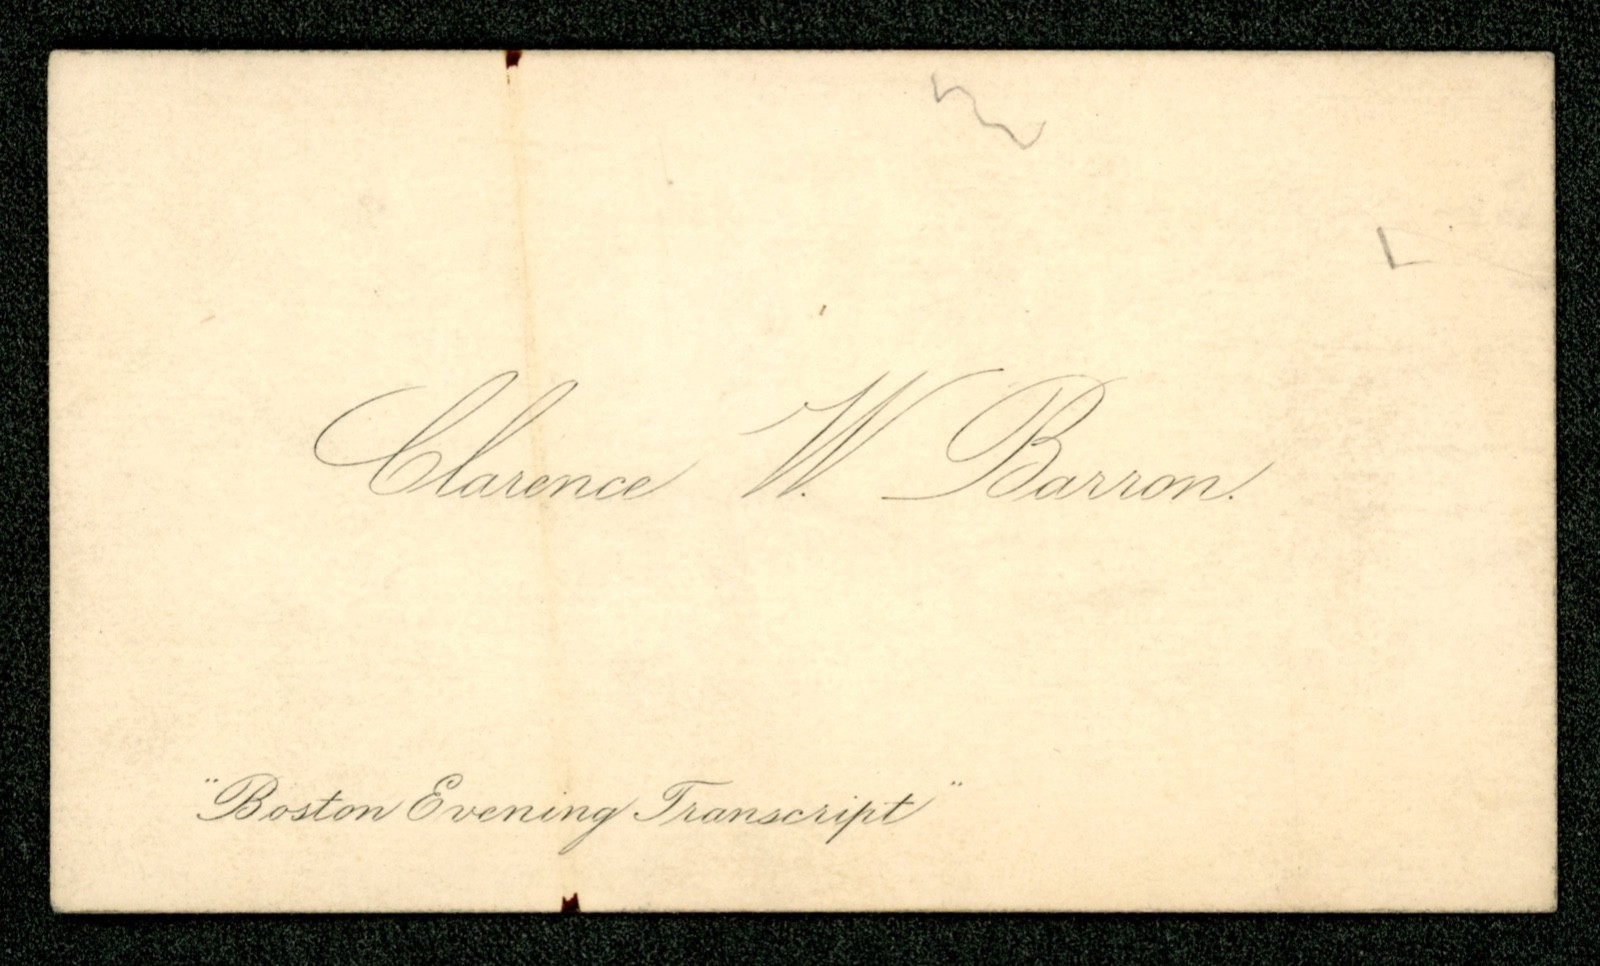 Clarence W. Barron.
"Boston Evening Transcript"